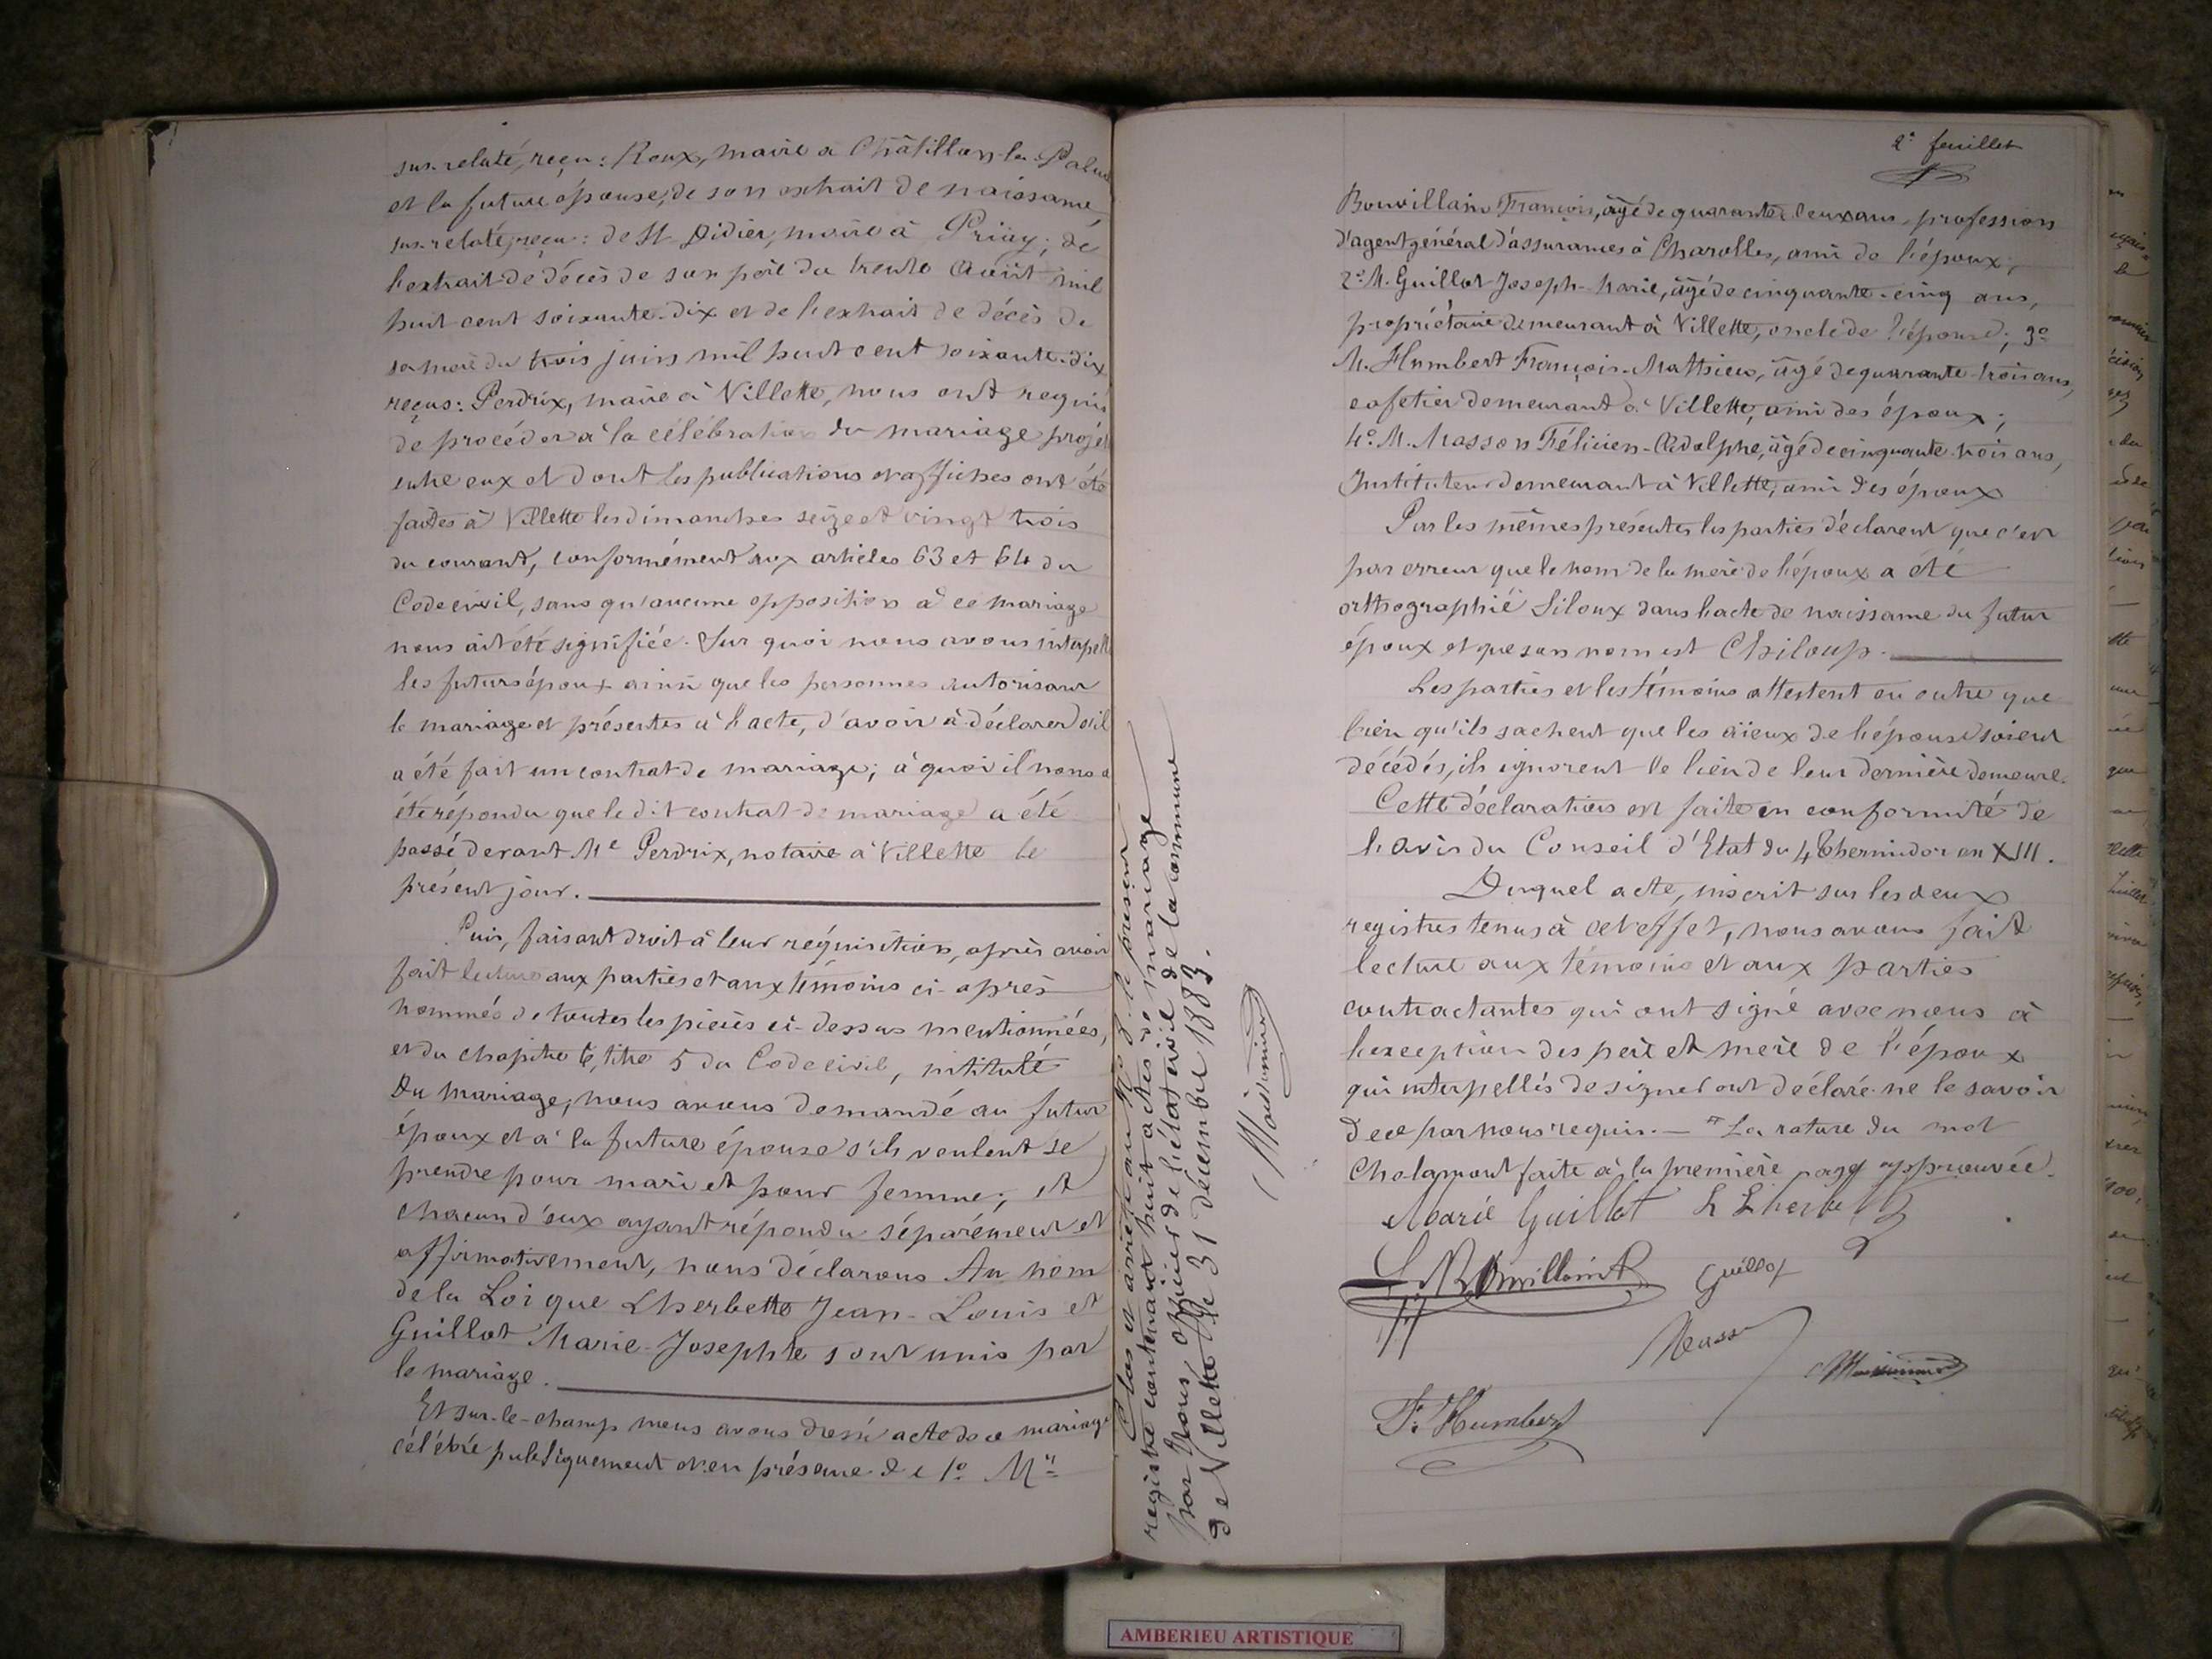 sus-relaté, reçu : Roux, maire à Châtillon-la-Palud
et la future épouse, de son extrait de naissance
sus-relaté, reçu : de St Didier, maire à Priay ; de
l'extrait de décès de son père du trente Août mil
huit cent soixante-dix et de l'extrait de décès de
sa mère du trois juin mil huit cent soixante-dix
reçus : Perdrix, maire à Villette, nous ont requis
de procéder à la célébration du mariage projeté
entre eux et dont les publications et affiches ont été
faites à Villette les dimanches seize et vingt trois
du courant, conformément aux articles 63 et 64 du
Code civil, sans qu'aucune opposition à ce mariage
nous ait été signifiée. Sur quoi nous avons interpellé
les futurs époux ainsi que les personnes autorisant
le mariage et présentes à l'acte, d'avoir à déclarer s'il
a été fait un contrat de mariage ; à quoi il nous a
été répondu que le dit contrat de mariage a été
passé devant Me Perdrix, notaire à Villette le
présent jour.
Puis, faisant droit à leur réquisition, après avoir
fait lecture aux parties et aux témoins ci-après
nommés de toutes les pièces ci-dessus mentionnées,
et du chapitre 6, titre 5 du Code civil, intitulé
Du mariage, nous avons demandé au futur
époux et à la future épouse s'ils veulent se
prendre pour mari et pour femme ; et
chacun d'eux ayant répondu séparément et
affirmativement, nous déclarons Au nom
de la Loi que Lherbette Jean-Louis et
Guillot Marie-Josephte sont unis par
le mariage.
Et sur-le-champ nous avons dressé acte de ce mariage
célébré publiquement et en présence de 1° Mr
Clos et arrêté au le présent
registre contenant huit actes de mariage
par Nous officier de l'état civil de la commune
de Villette le 31 décembre 1883.
2e feuillet
Bouvillain François, âgé de quarante deux ans, profession
d'agent général d'assurances à Charolles, ami de l'époux ;
2° M. Guillot Joseph-Marie, âgé de cinquante-cinq ans,
propriétaire demeurant à Villette, oncle de l'épouse ; 3°
M. Humbert François-Mathieu, âgé de quarante trois ans,
cafetier demeurant à Villette, ami des époux ;
4° M. Masson Félicien-Adolphe, âgé de cinquante trois ans,
Instituteur demeurant à Villette, ami des époux
Par les mêmes présentes les parties déclarent que c'est
par erreur que le nom de la mère de l'époux a été
orthographié Siloux dans l'acte de naissance du futur
époux et que son nom est Chiloup.
Les parties et les témoins attestent en outre que
bien qu'ils sachent que les aïeux de l'épouse soient
décédés, ils ignorent le lieu de leur dernière demeure.
Cette déclaration est faite en conformité de
l'avis du Conseil d'Etat du 4 Thermidor an XIII.
Duquel acte, inscrit sur les deux
registres tenus à cet effet, nous avons fait
lecture aux témoins et aux parties
contractantes qui ont signé avec nous à
l'exception des père et mère de l'époux
qui interpellés de signer ont déclaré ne le savoir
de ce par nous requis. — La rature du mot
Chalamont faite à la première page approuvée.
Marie Guillot L Lherbette
Bouvillain Guillot
Masson
F. Humbert
AMBERIEU ARTISTIQUE